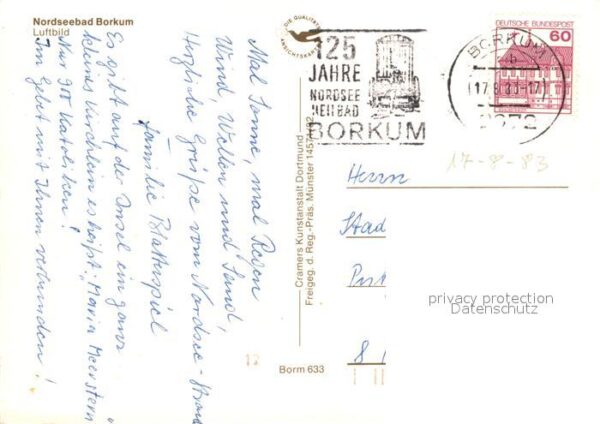 Nordseebad Borkum
Luftbild
DIE QUALITÄTS
ANSICHTSKARTE
125
JAHRE
NORDSEE
HEILBAD
BORKUM
BORKUM
b
17.8.83-17
2972
DEUTSCHE BUNDESPOST
60
17-8-83
Mal Sonne, mal Regen
Wind, Wellen und Sand,
Herzliche Grüße vom Nordsee-Strand
Familie
Es gibt auf der Insel ein ganz
kleines Kirchlein es heißt: "Maria Meerstern"
Nur 900 Katoliken!
Im Gebet mit Ihnen verbunden!
Cramers Kunstanstalt Dortmund
Freigeg. d. Reg.-Präs. Münster 1457
Borm 633
12
Herrn
Stad
8
privacy protection
Datenschutz